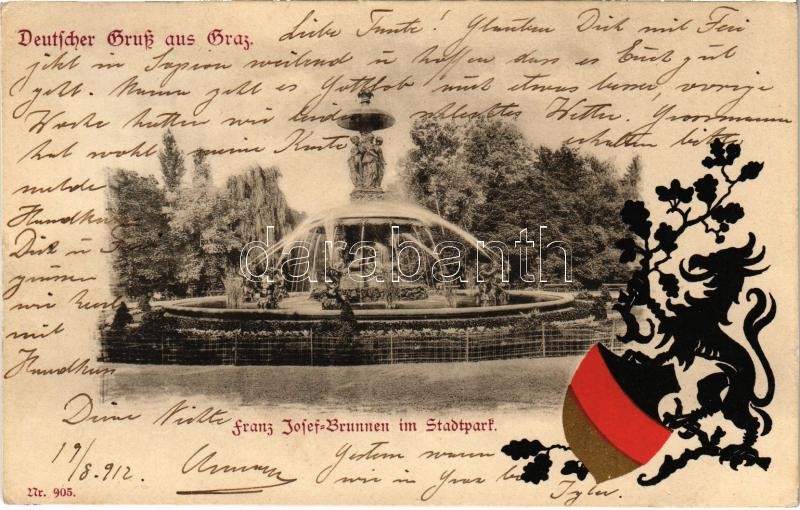 Deutscher Gruß aus Graz.
Liebe Tante! Glauben Dich mit
jetzt in weilend u hoffen dass es Euch gut
geht. Mama geht es Gottlob auch etwas besser, vorige
Woche hatten wir leider schlechtes Wetter. Grossmama
hat wohl meine Karte erhalten bitte
melde
Handkuss
Dich u
grüssen
wir herzl
mit
Handkuss
Deine Nichte
19/8.912.
Franz Josef-Brunnen im Stadtpark.
Gestern waren
wir in Graz bei
Nr. 905.
darabanth